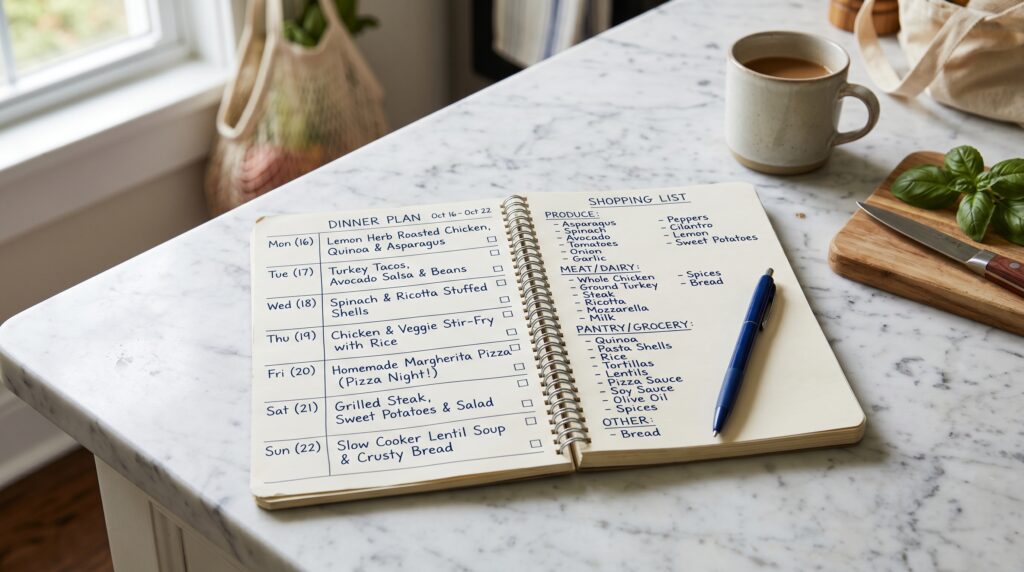 DINNER PLAN Oct 16 - Oct 22
Mon (16) Lemon Herb Roasted Chicken,
Quinoa & Asparagus
Tue (17) Turkey Tacos,
Avocado Salsa & Beans
Wed (18) Spinach & Ricotta Stuffed
Shells
Thu (19) Chicken & Veggie Stir-Fry
with Rice
Fri (20) Homemade Margherita Pizza
(Pizza Night!)
Sat (21) Grilled Steak,
Sweet Potatoes & Salad
Sun (22) Slow Cooker Lentil Soup
& Crusty Bread
SHOPPING LIST
PRODUCE:
- Asparagus
- Spinach
- Avocado
- Tomatoes
- Onion
- Garlic
- Peppers
- Cilantro
- Lemon
- Sweet Potatoes
MEAT/DAIRY:
- Whole Chicken
- Ground Turkey
- Steak
- Ricotta
- Mozzarella
- Milk
- Spices
- Bread
PANTRY/GROCERY:
- Quinoa
- Pasta Shells
- Rice
- Tortillas
- Lentils
- Pizza Sauce
- Soy Sauce
- Olive Oil
- Spices
OTHER:
- Bread